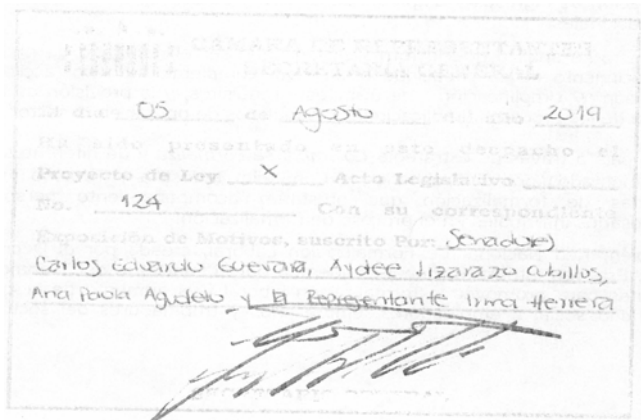 CAMARA DE REPRESENTANTES
SECRETARIO GENERAL
05 de Agosto del año 2019
Ha sido presentado en este despacho el
Proyecto de Ley X Acto Legislativo
No. 124 Con su correspondiente
Exposición de Motivos, suscrito Por: Senadores)
Carlos Eduardo Guevara, Aydee Lizarazo Cubillos,
Ana Paola Agudelo y la Representante Irma Herrera
SECRETARIO GENERAL